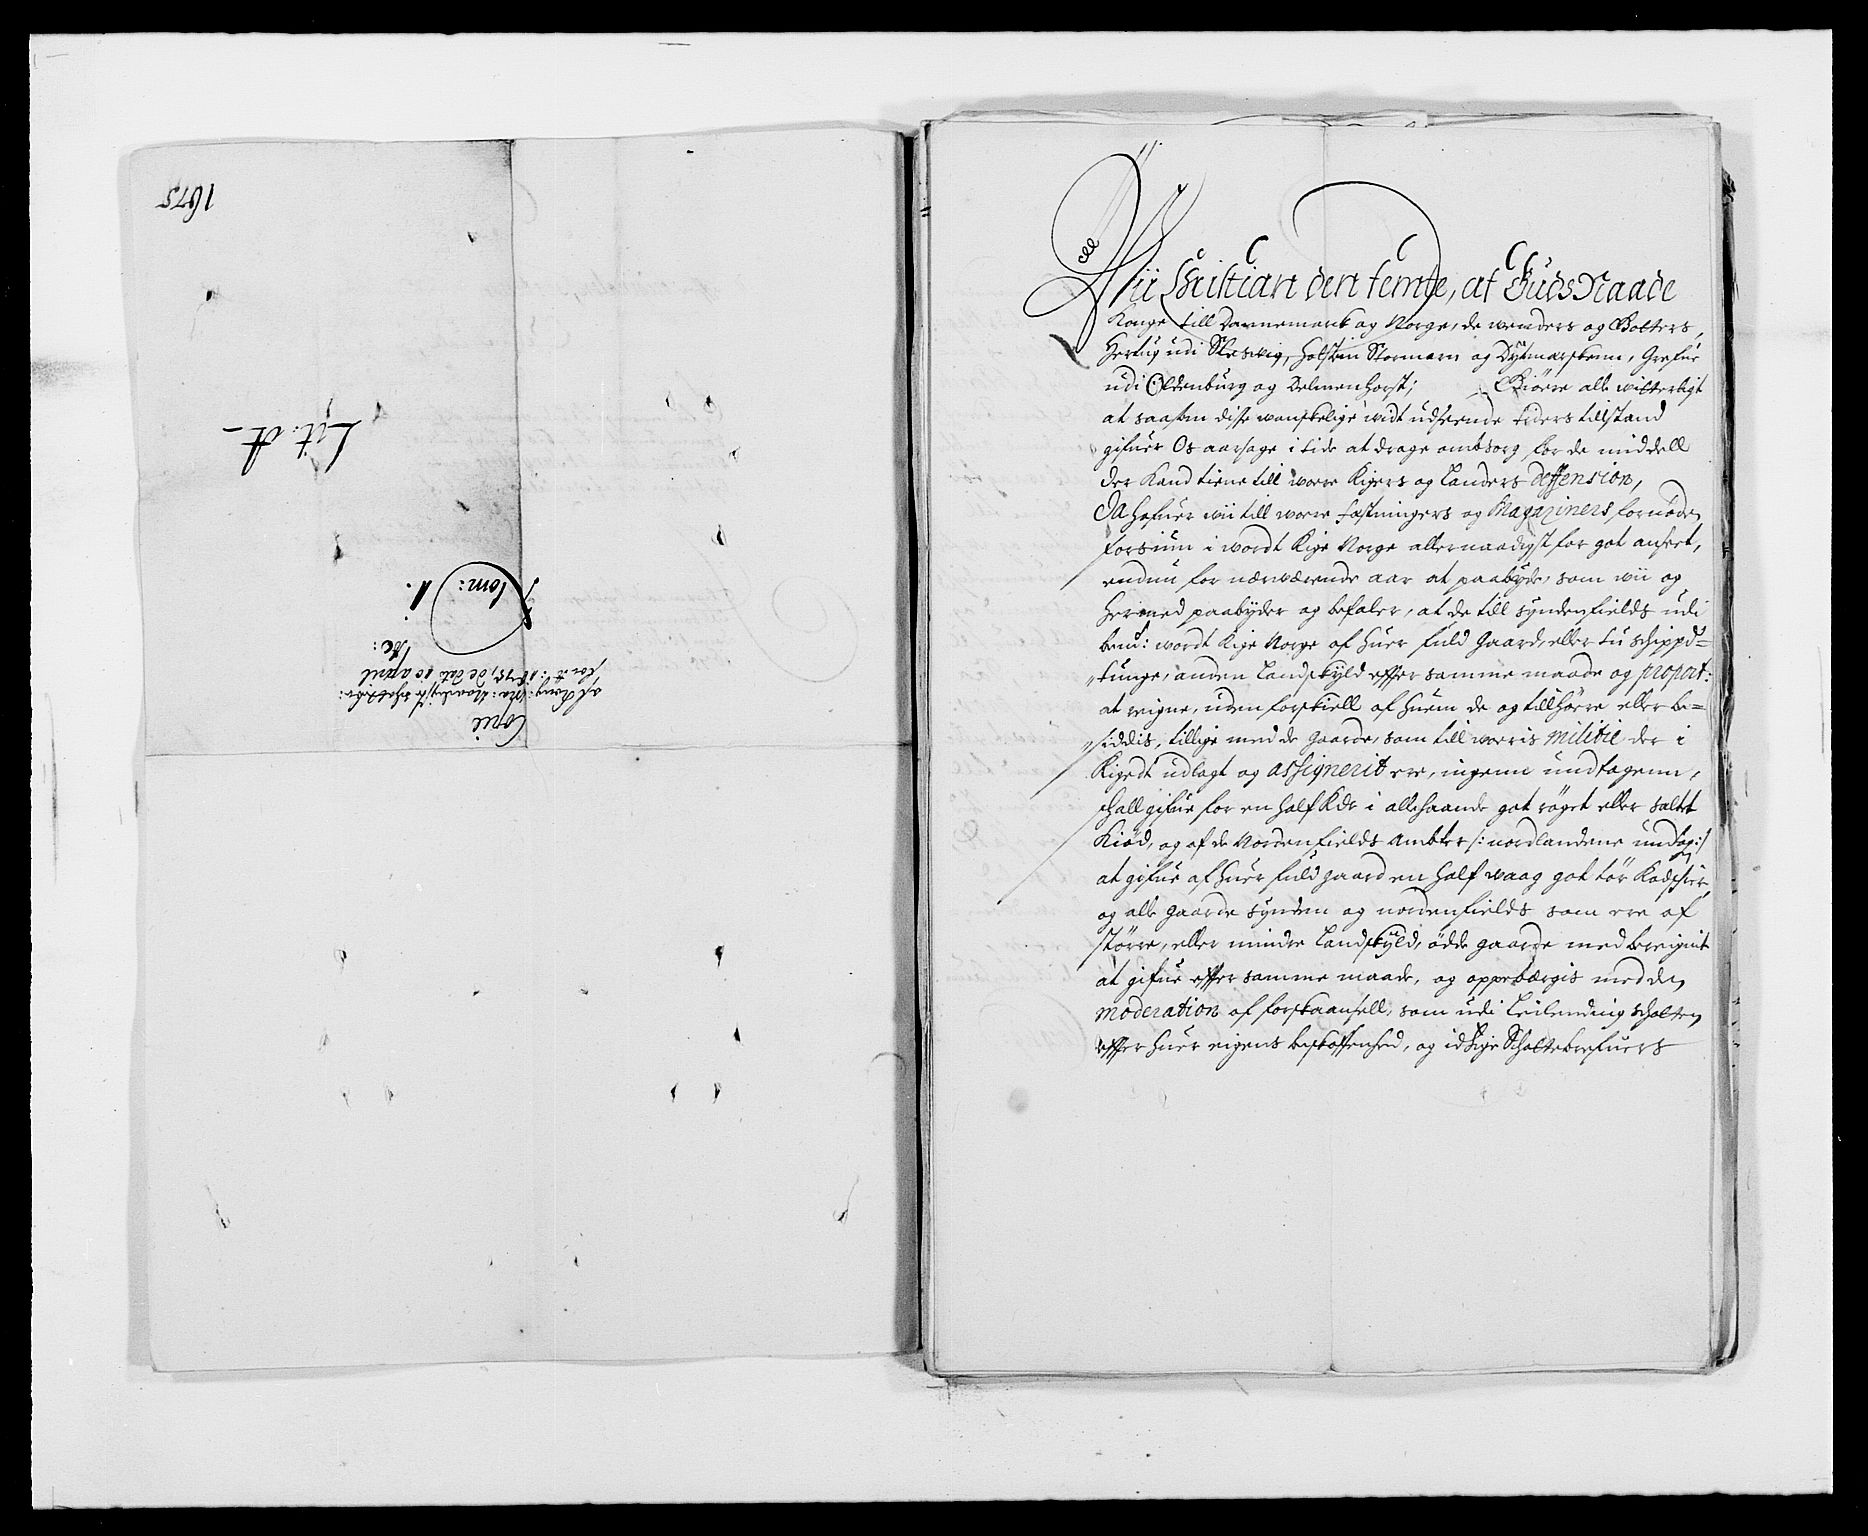 1675
Lit. A
Nom: 1.
Copie
af Kong: Ma: Naadigst schatte br:
for A: 1675, de dat: 10 april
etc:
Wii Christian den femte, af Guds Naade
Konge till Dannemark og Norge, de Wenders og Gotters,
Hertug udi Sleswig, Holsten Stormarn og Dytmarskenn, Grefue
udi Oldenburg og Delmenhorst; Giøre alle witterligt
at saasom disse wanskelige widt udseende tiders tillstand
gifuer Os aarsage i tide at drage ombsorg for de middell
der kand tiene till wore Rigers og Landers deffension,
Da hafuer wii till worre festningers og Magaziners fornøden
forsiun i wordt Rige Norge allernaadigst for got anseet,
endnu for nærwærende aar at paabyde, som wii og
hermed paabyder og befaler, at de till syndenfields udi
bemt: wordt Rige Norge af huer fuld Gaard, eller tu schippd=
tunge, anden Landskyld effter samme maade og proport:
at reigne, uden forskiell af huem de og tillhøre eller be=
siddis, tillige med de gaarde, som till woris militie der i
Riget udlagt og assignerit ere, ingenn undtagenn,
schall gifue for en half Rdr i allehaande got røget eller saltet
Kiød, og af de Nordenfields Ambter /: nordlandene undtag:/
at gifue af huer fuld gaard en half waag got tør Rodschier,
og alle gaarde synden og nordenfields som ere af
større, eller mindre Landskyld, ødde gaarde med bereignit
at gifue effter samme maade, og oppebærgis med den
moderation af forskaansell, som udi Leilending schatten
effter huer eigens beskaffenhed, og idtzige Schattebrefuers